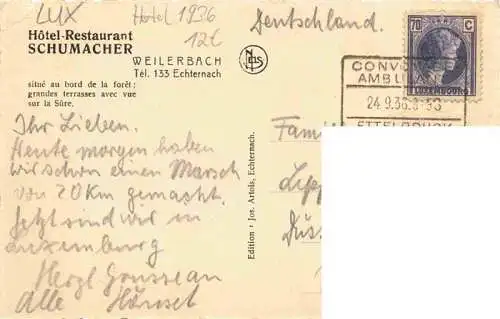 LUX
Hotel 1936
12€
Deutschland.
Hôtel-Restaurant
SCHUMACHER
WEILERBACH
Tél. 133 Echternach
situé au bord de la forêt;
grandes terrasses avec vue
sur la Sûre.
NELS
70 C
LUXEMBOURG
24.9.36.
Ihr Lieben.
Heute morgen haben
wir schon einen Marsch
von 20 Km gemacht.
Jetzt sind wir in
Luxemburg
Herzl
Alle
Edition: Jos. Artois, Echternach.
Fami
Lipp
Düs